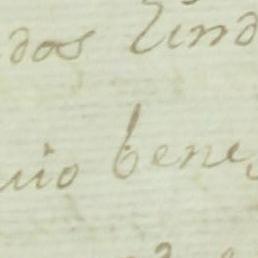 dos Lind
uio bene